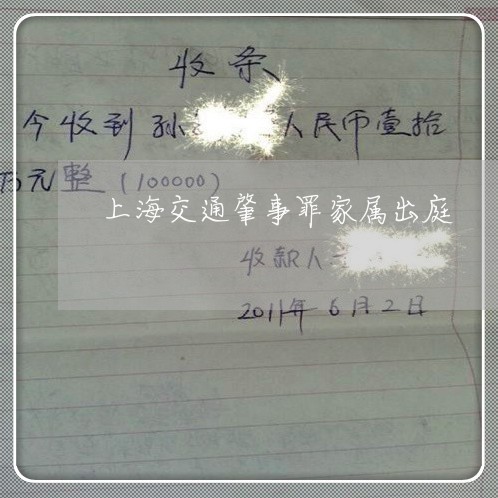 收条
今收到孙 人民币壹拾
万元整（100000）
上海交通肇事罪家属出庭
收款人
2011年6月2日